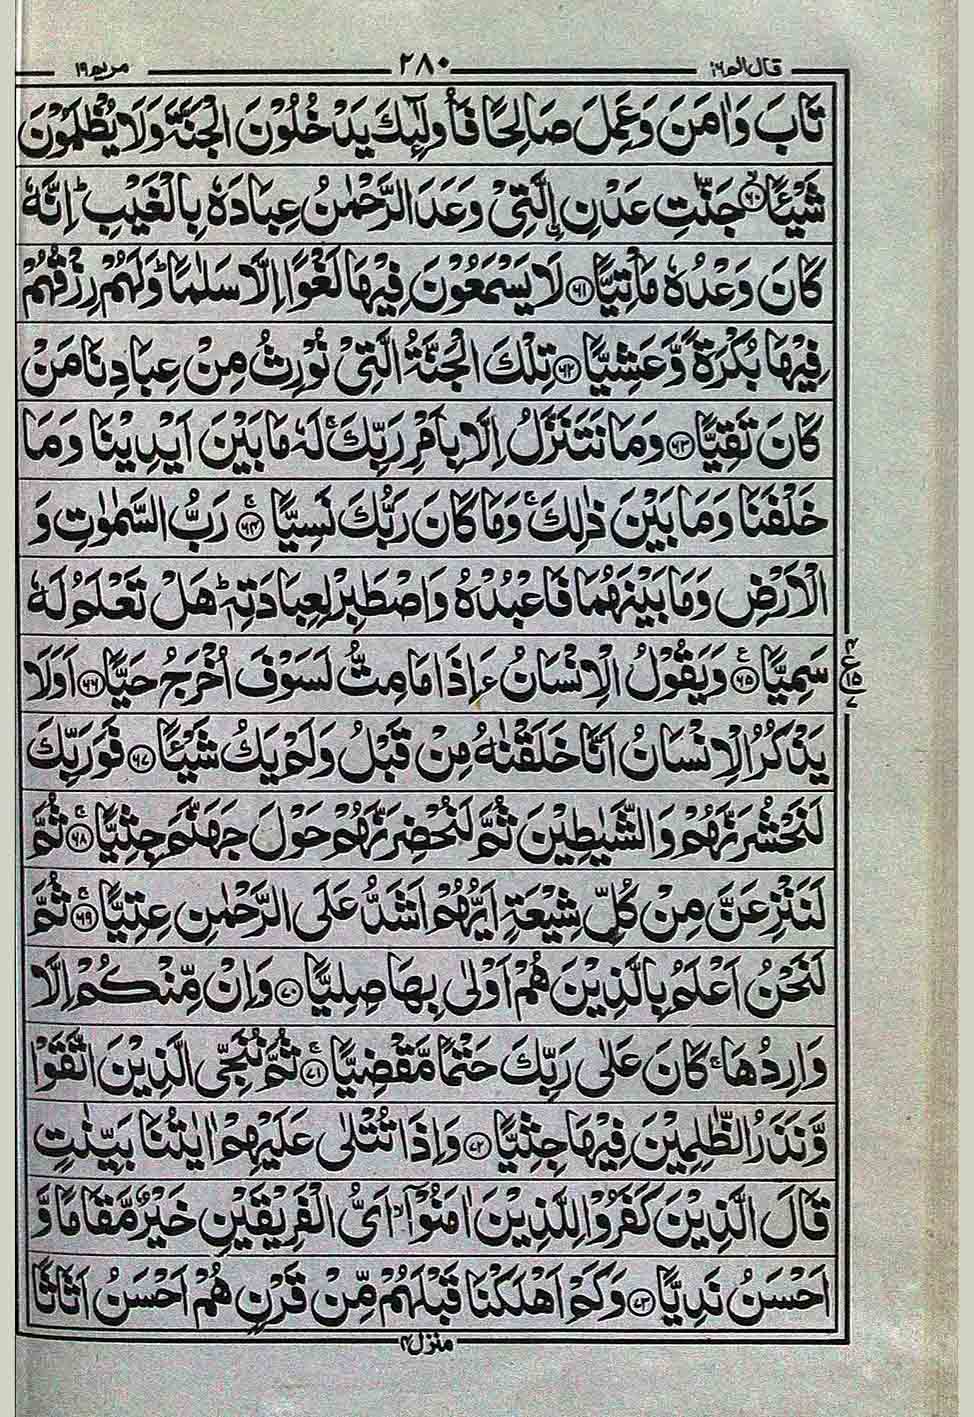 مريم ١٩ ٢٨٠ قال الم ١٦
تَابَ وَاٰمَنَ وَعَمِلَ صَالِحًا فَاُولٰٓئِكَ يَدْخُلُوْنَ الْجَنَّةَ وَلَا يُظْلَمُوْنَ
شَيْئًا ۙ﴿٦٠﴾ جَنّٰتِ عَدْنِ ࣙالَّتِيْ وَعَدَ الرَّحْمٰنُ عِبَادَهٗ بِالْغَيْبِ ؕ اِنَّهٗ
كَانَ وَعْدُهٗ مَاْتِيًّا ﴿٦١﴾ لَا يَسْمَعُوْنَ فِيْهَا لَغْوًا اِلَّا سَلٰمًا ؕ وَلَهُمْ رِزْقُهُمْ
فِيْهَا بُكْرَةً وَّعَشِيًّا ﴿٦٢﴾ تِلْكَ الْجَنَّةُ الَّتِيْ نُوْرِثُ مِنْ عِبَادِنَا مَنْ
كَانَ تَقِيًّا ﴿٦٣﴾ وَمَا نَتَنَزَّلُ اِلَّا بِاَمْرِ رَبِّكَ ۚ لَهٗ مَا بَيْنَ اَيْدِيْنَا وَمَا
خَلْفَنَا وَمَا بَيْنَ ذٰلِكَ ۚ وَمَا كَانَ رَبُّكَ نَسِيًّا ۚ﴿٦٤﴾ رَبُّ السَّمٰوٰتِ وَ
الْاَرْضِ وَمَا بَيْنَهُمَا فَاعْبُدْهُ وَاصْطَبِرْ لِعِبَادَتِهٖ ؕ هَلْ تَعْلَمُ لَهٗ
سَمِيًّا ۠﴿٦٥﴾ وَيَقُوْلُ الْاِنْسَانُ ءَاِذَا مَا مِتُّ لَسَوْفَ اُخْرَجُ حَيًّا ﴿٦٦﴾ اَوَلَا
٤ ع ١٥ ٧
يَذْكُرُ الْاِنْسَانُ اَنَّا خَلَقْنٰهُ مِنْ قَبْلُ وَلَمْ يَكُ شَيْئًا ﴿٦٧﴾ فَوَرَبِّكَ
لَنَحْشُرَنَّهُمْ وَالشَّيٰطِيْنَ ثُمَّ لَنُحْضِرَنَّهُمْ حَوْلَ جَهَنَّمَ جِثِيًّا ۚ﴿٦٨﴾ ثُمَّ
لَنَنْزِعَنَّ مِنْ كُلِّ شِيْعَةٍ اَيُّهُمْ اَشَدُّ عَلَى الرَّحْمٰنِ عِتِيًّا ۚ﴿٦٩﴾ ثُمَّ
لَنَحْنُ اَعْلَمُ بِالَّذِيْنَ هُمْ اَوْلٰى بِهَا صِلِيًّا ﴿٧٠﴾ وَاِنْ مِّنْكُمْ اِلَّا
وَارِدُهَا ۚ كَانَ عَلٰى رَبِّكَ حَتْمًا مَّقْضِيًّا ۚ﴿٧١﴾ ثُمَّ نُنَجِّي الَّذِيْنَ اتَّقَوْا
وَّنَذَرُ الظّٰلِمِيْنَ فِيْهَا جِثِيًّا ﴿٧٢﴾ وَاِذَا تُتْلٰى عَلَيْهِمْ اٰيٰتُنَا بَيِّنٰتٍ
قَالَ الَّذِيْنَ كَفَرُوْا لِلَّذِيْنَ اٰمَنُوْٓا ۙ اَيُّ الْفَرِيْقَيْنِ خَيْرٌ مَّقَامًا وَّ
اَحْسَنُ نَدِيًّا ﴿٧٣﴾ وَكَمْ اَهْلَكْنَا قَبْلَهُمْ مِّنْ قَرْنٍ هُمْ اَحْسَنُ اَثَاثًا
منزل ٤